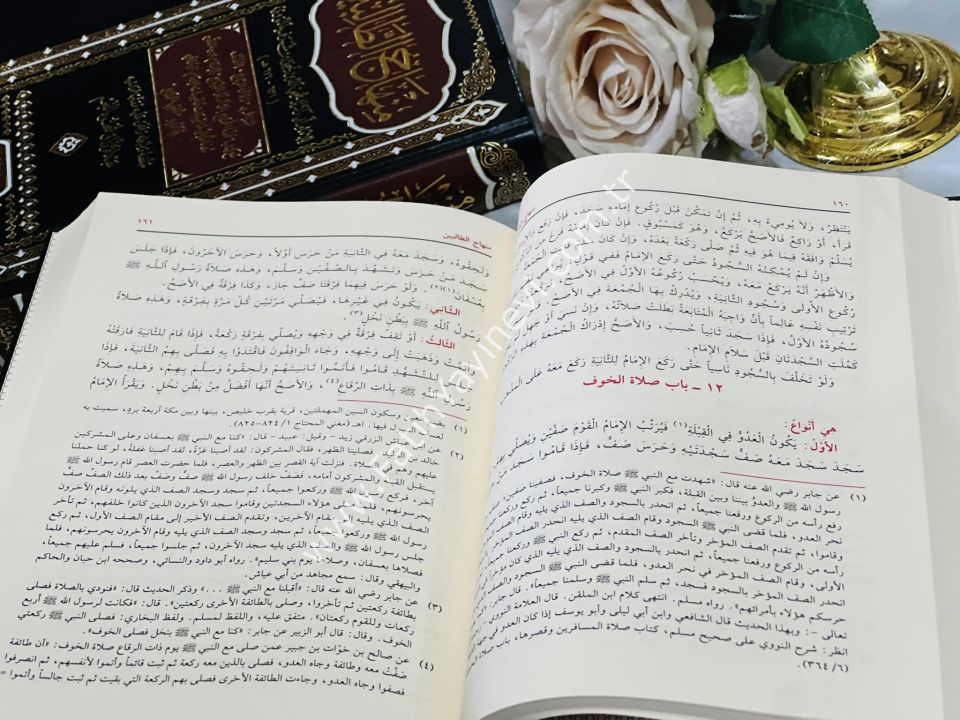 منهاج الطالبين
١٦٠
يَنْتَظِرُ، وَلَا يُومِىءُ بِهِ، ثُمَّ إِنْ تَمَكَّنَ قَبْلَ رُكُوعِ إِمَامِهِ سَجَدَ، فَإِنْ رَفَعَ
قَرَأَ، أَوْ رَاكِعٌ فَالأَصَحُّ يَرْكَعُ، وَهُوَ كَمَسْبُوقٍ، فَإِنْ كَانَ
يُسَلِّمْ وَافَقَهُ فِيمَا هُوَ فِيهِ ثُمَّ صَلَّى رَكْعَةً بَعْدَهُ، وَإِنْ كَانَ
وَإِنْ لَمْ يُمْكِنْهُ السُّجُودُ حَتَّى رَكَعَ الإِمَامُ فَفِي قَوْلٍ
وَالأَظْهَرُ أَنَّهُ يَرْكَعُ مَعَهُ، وَيُحْسَبُ رُكُوعُهُ الأَوَّلُ فِي الأَصَحِّ
رُكُوعِ الأُولَى وَسُجُودِ الثَّانِيَةِ، وَيُدْرِكُ بِهَا الْجُمُعَةَ فِي الأَصَحِّ
تَرْتِيبِ نَفْسِهِ عَالِماً بِأَنَّ وَاجِبَهُ الْمُتَابَعَةُ بَطَلَتْ صَلَاتُهُ، وَإِنْ نَسِيَ أَوْ جَهِلَ
سُجُودُهُ الأَوَّلُ، فَإِذَا سَجَدَ ثَانِياً حُسِبَ، وَالأَصَحُّ إِدْرَاكُ الْجُمُعَةِ بِهَذِهِ
كَمُلَتِ السَّجْدَتَانِ قَبْلَ سَلَامِ الإِمَامِ.
وَلَوْ تَخَلَّفَ بِالسُّجُودِ نَاسِياً حَتَّى رَكَعَ الإِمَامُ لِلثَّانِيَةِ رَكَعَ مَعَهُ عَلَى
١٢ ـ باب صلاة الخوف
هِيَ أَنْوَاعٌ:
الأَوَّلُ: يَكُونُ الْعَدُوُّ فِي الْقِبْلَةِ(١) فَيُرَتِّبُ الإِمَامُ الْقَوْمَ صَفَّيْنِ وَيُصَلِّي
سَجَدَ سَجَدَ مَعَهُ صَفٌّ سَجْدَتَيْهِ وَحَرَسَ صَفٌّ، فَإِذَا قَامُوا سَجَدَ
(١) عن جابر رضي الله عنه قال: «شهدت مع النبي ﷺ صلاة الخوف، فصفّنا صفين
رسول الله ﷺ والعدو بيننا وبين القبلة، فكبر النبي ﷺ وكبرنا جميعاً، ثم ركع
رفع رأسه من الركوع ورفعنا جميعاً، ثم انحدر بالسجود والصف الذي يليه
نحر العدو، فلما قضى النبي ﷺ السجود وقام الصف الذي يليه انحدر الصف
وقاموا، ثم تقدم الصف المؤخر وتأخر الصف المقدم، ثم ركع النبي ﷺ وركعنا
رأسه من الركوع ورفعنا جميعاً، ثم انحدر بالسجود والصف الذي يليه
الأولى، وقام الصف المؤخر في نحر العدو، فلما قضى النبي ﷺ
انحدر الصف المؤخر بالسجود فسجد، ثم سلم النبي ﷺ وسلمنا جميعاً». قال
حرسكم هؤلاء بأمرائهم». رواه مسلم. انتهى كلام ابن الملقن. قال العلامة النووي
تعالى -: وبهذا الحديث قال الشافعي وابن أبي ليلى وأبو يوسف إذا كان
انظر: شرح النووي على صحيح مسلم، كتاب صلاة المسافرين وقصرها، باب
(٦/ ٣٦٤).
منهاج الطالبين
١٦١
وَلَحِقُوهُ، وَسَجَدَ مَعَهُ فِي الثَّانِيَةِ مَنْ حَرَسَ أَوَّلاً، وَحَرَسَ الآخَرُونَ، فَإِذَا جَلَسَ
سَجَدَ مَنْ حَرَسَ وَتَشَهَّدَ بِالصَّفَّيْنِ وَسَلَّمَ، وَهَذِهِ صَلَاةُ رَسُولِ اللَّهِ ﷺ
بِعُسْفَانَ(١)(٢). وَلَوْ حَرَسَ فِيهِمَا فِرْقَتَا صَفٍّ جَازَ، وَكَذَا فِرْقَةٌ فِي الأَصَحِّ.
الثَّانِي: يَكُونُ فِي غَيْرِهَا، فَيُصَلِّي مَرَّتَيْنِ كُلَّ مَرَّةٍ بِفِرْقَةٍ، وَهَذِهِ صَلَاةُ
رَسُولِ اللَّهِ ﷺ بِبَطْنِ نَخْلٍ(٣).
الثَّالِثُ: أَوْ تَقِفُ فِرْقَةٌ فِي وَجْهِهِ وَيُصَلِّي بِفِرْقَةٍ رَكْعَةً، فَإِذَا قَامَ لِلثَّانِيَةِ فَارَقَتْهُ
وَأَتَمَّتْ وَذَهَبَتْ إِلَى وَجْهِهِ، وَجَاءَ الْوَاقِفُونَ فَاقْتَدُوا بِهِ فَصَلَّى بِهِمُ الثَّانِيَةَ، فَإِذَا
جَلَسَ لِلتَّشَهُّدِ قَامُوا فَأَتَمُّوا ثَانِيَتَهُمْ وَلَحِقُوهُ وَسَلَّمَ بِهِمْ، وَهَذِهِ صَلَاةُ
رَسُولِ اللَّهِ ﷺ بِذَاتِ الرِّقَاعِ(٤)، وَالأَصَحُّ أَنَّهَا أَفْضَلُ مِنْ بَطْنِ نَخْلٍ. وَيَقْرَأُ الإِمَامُ
(١) بضم العين وسكون السين المهملتين، قرية بقرب خليص، بينها وبين مكة أربعة برد، سميت به
لعسف السيول فيها. اهـ (مغني المحتاج ١/ ٨٢٤-٨٢٥)
(٢) عن أبي عياش الزرقي زيد – وقيل: عبيد – قال: «كنا مع النبي ﷺ بعسفان وعلى المشركين
خالد بن فصلينا الظهر، فقال المشركون: لقد أصبنا غرّة، لقد أصبنا غفلة، لو كنا حملنا
عليهم وهم في الصلاة، فنزلت آية القصر بين الظهر والعصر، فلما حضرت العصر قام رسول الله ﷺ
مستقبل القبلة والمشركون أمامه، فصف خلف رسول الله ﷺ صفّ وصف بعد ذلك الصف صفّ
آخر، فركع رسول الله ﷺ وركعوا جميعاً، ثم سجد وسجد الصف الذي يلونه وقام الآخرون
يحرسونهم، فلما صلى هؤلاء السجدتين وقاموا سجد الآخرون الذين كانوا خلفهم، ثم تأخر
الصف الذي يليه إلى مقام الآخرين، وتقدم الصف الأخير إلى مقام الصف الأول، ثم ركع
رسول الله ﷺ وركعوا جميعاً، ثم سجد وسجد الصف الذي يليه وقام الآخرون يحرسونهم، فلما
جلس رسول الله ﷺ والصف الذي يليه سجد الآخرون، ثم جلسوا جميعاً، فسلم عليهم جميعاً،
فصلاها بعسفان، وصلاها يوم بني سليم». رواه أبو داود والنسائي، وصححه ابن حبان والحاكم
والبيهقي وقال: سمع مجاهد من أبي عياش.
(٣) عن جابر رضي الله عنه قال: «أقبلنا مع النبي ﷺ ...» وذكر الحديث قال: «فنودي بالصلاة فصلى
بطائفة ركعتين ثم تأخروا، وصلى بالطائفة الأخرى ركعتين». قال: «فكانت لرسول الله ﷺ أربع
ركعات وللقوم ركعتان». متفق عليه، واللفظ لمسلم. ولفظ البخاري: فصلى النبي ﷺ ركعتي
الخوف. وقال: قال أبو الزبير عن جابر: «كنا مع النبي ﷺ بنخل فصلى الخوف».
(٤) عن صالح بن خوّات بن جبير عمن صلى مع النبي ﷺ يوم ذات الرقاع صلاة الخوف: «أن طائفة
صفّت معه وطائفة وجاه العدو، فصلى بالذين معه ركعة ثم ثبت قائماً وأتموا لأنفسهم، ثم انصرفوا
فصفوا وجاه العدو، وجاءت الطائفة الأخرى فصلى بهم الركعة التي بقيت ثم ثبت جالساً وأتموا =
www.FatihYayinevi.com.tr